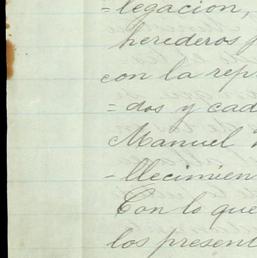 =legacion,
herederos
con la rep
=dos y cad
Manuel
-llecimien
Con lo que
los present